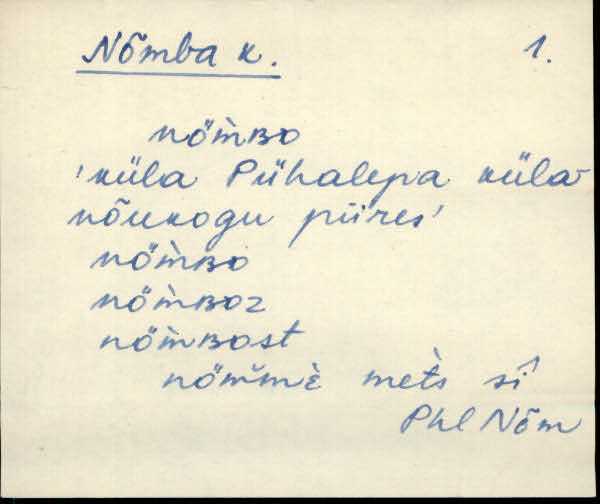 Nõmba k. 1.
nöm̀ʙo
'küla Pühalepa küla-
nõukogu piires'
nöm̀ʙo
nöm̀ʙoz
nöm̀ʙost
nöm̆mè met̀s sî
Phl Nõm